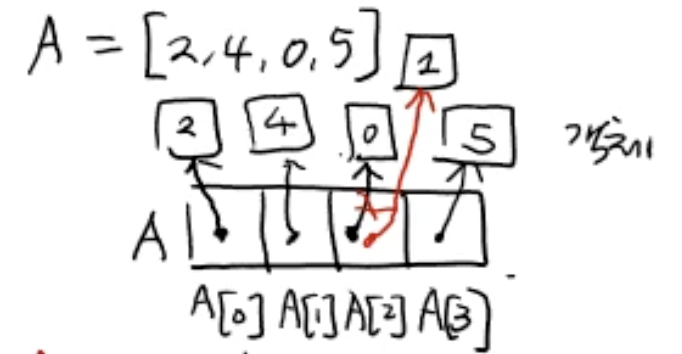 A = [2,4,0,5]
1
2 4 0 5 객체
A
A[0] A[1] A[2] A[3]